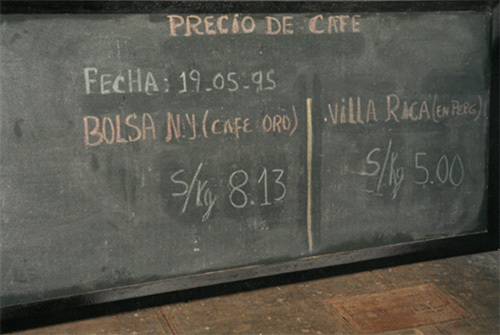 PRECIO DE CAFE
FECHA: 19-05-95
BOLSA N.Y. (CAFE ORO)
S/kg 8.13
VILLA RICA (EN PERG)
S/kg 5.00